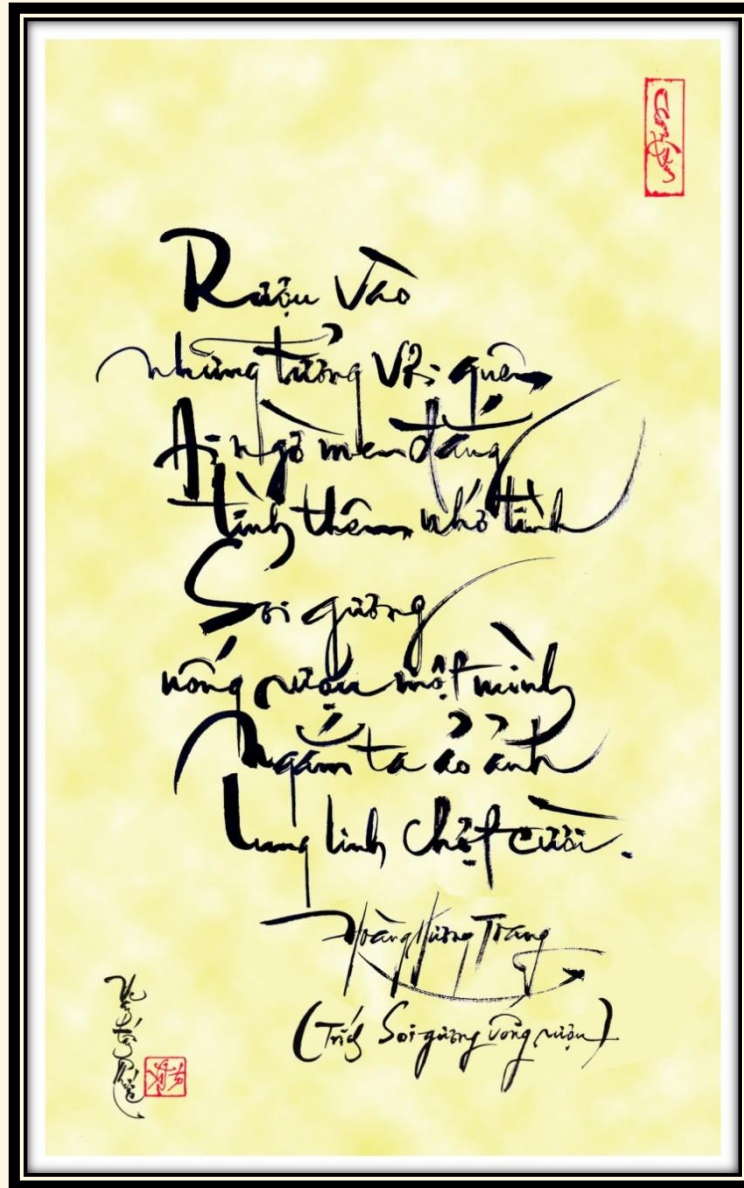 Rượu vào
những tưởng vùi quên
Ai ngờ men đắng
tình thêm nhớ tình
Soi gương
uống rượu một mình
Ngắm ta ảo ảnh
Lung linh chợt cười.
Hoàng Hương Trang
(Trích Soi gương uống rượu)